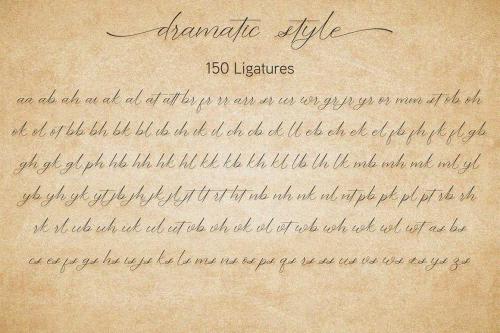 dramatic style
150 Ligatures
aa ab ah ai ak al at att br fr rr arr sr ur wr gr jr yr or mm st ob oh
ok ol ot bb bh bk bl ib ih ik il ch cb ck ll eb eh ek el fb fh fk fl gb
gh gk gl ph hb hh hk hl kk kb kh kl lb lh lk mb mh mk ml yl
yb yh yk yt jb jh jk jl jt lt rt ht nb nh nk nl nt pb pk pl pt rb rh
rk rl ub uh uk ul ut vb vh vk vl vt wb wh wk wl wt as bs
cs es fs gs hs is js ks ls ms ns os ps qs rs ss us vs ws xs ys zs